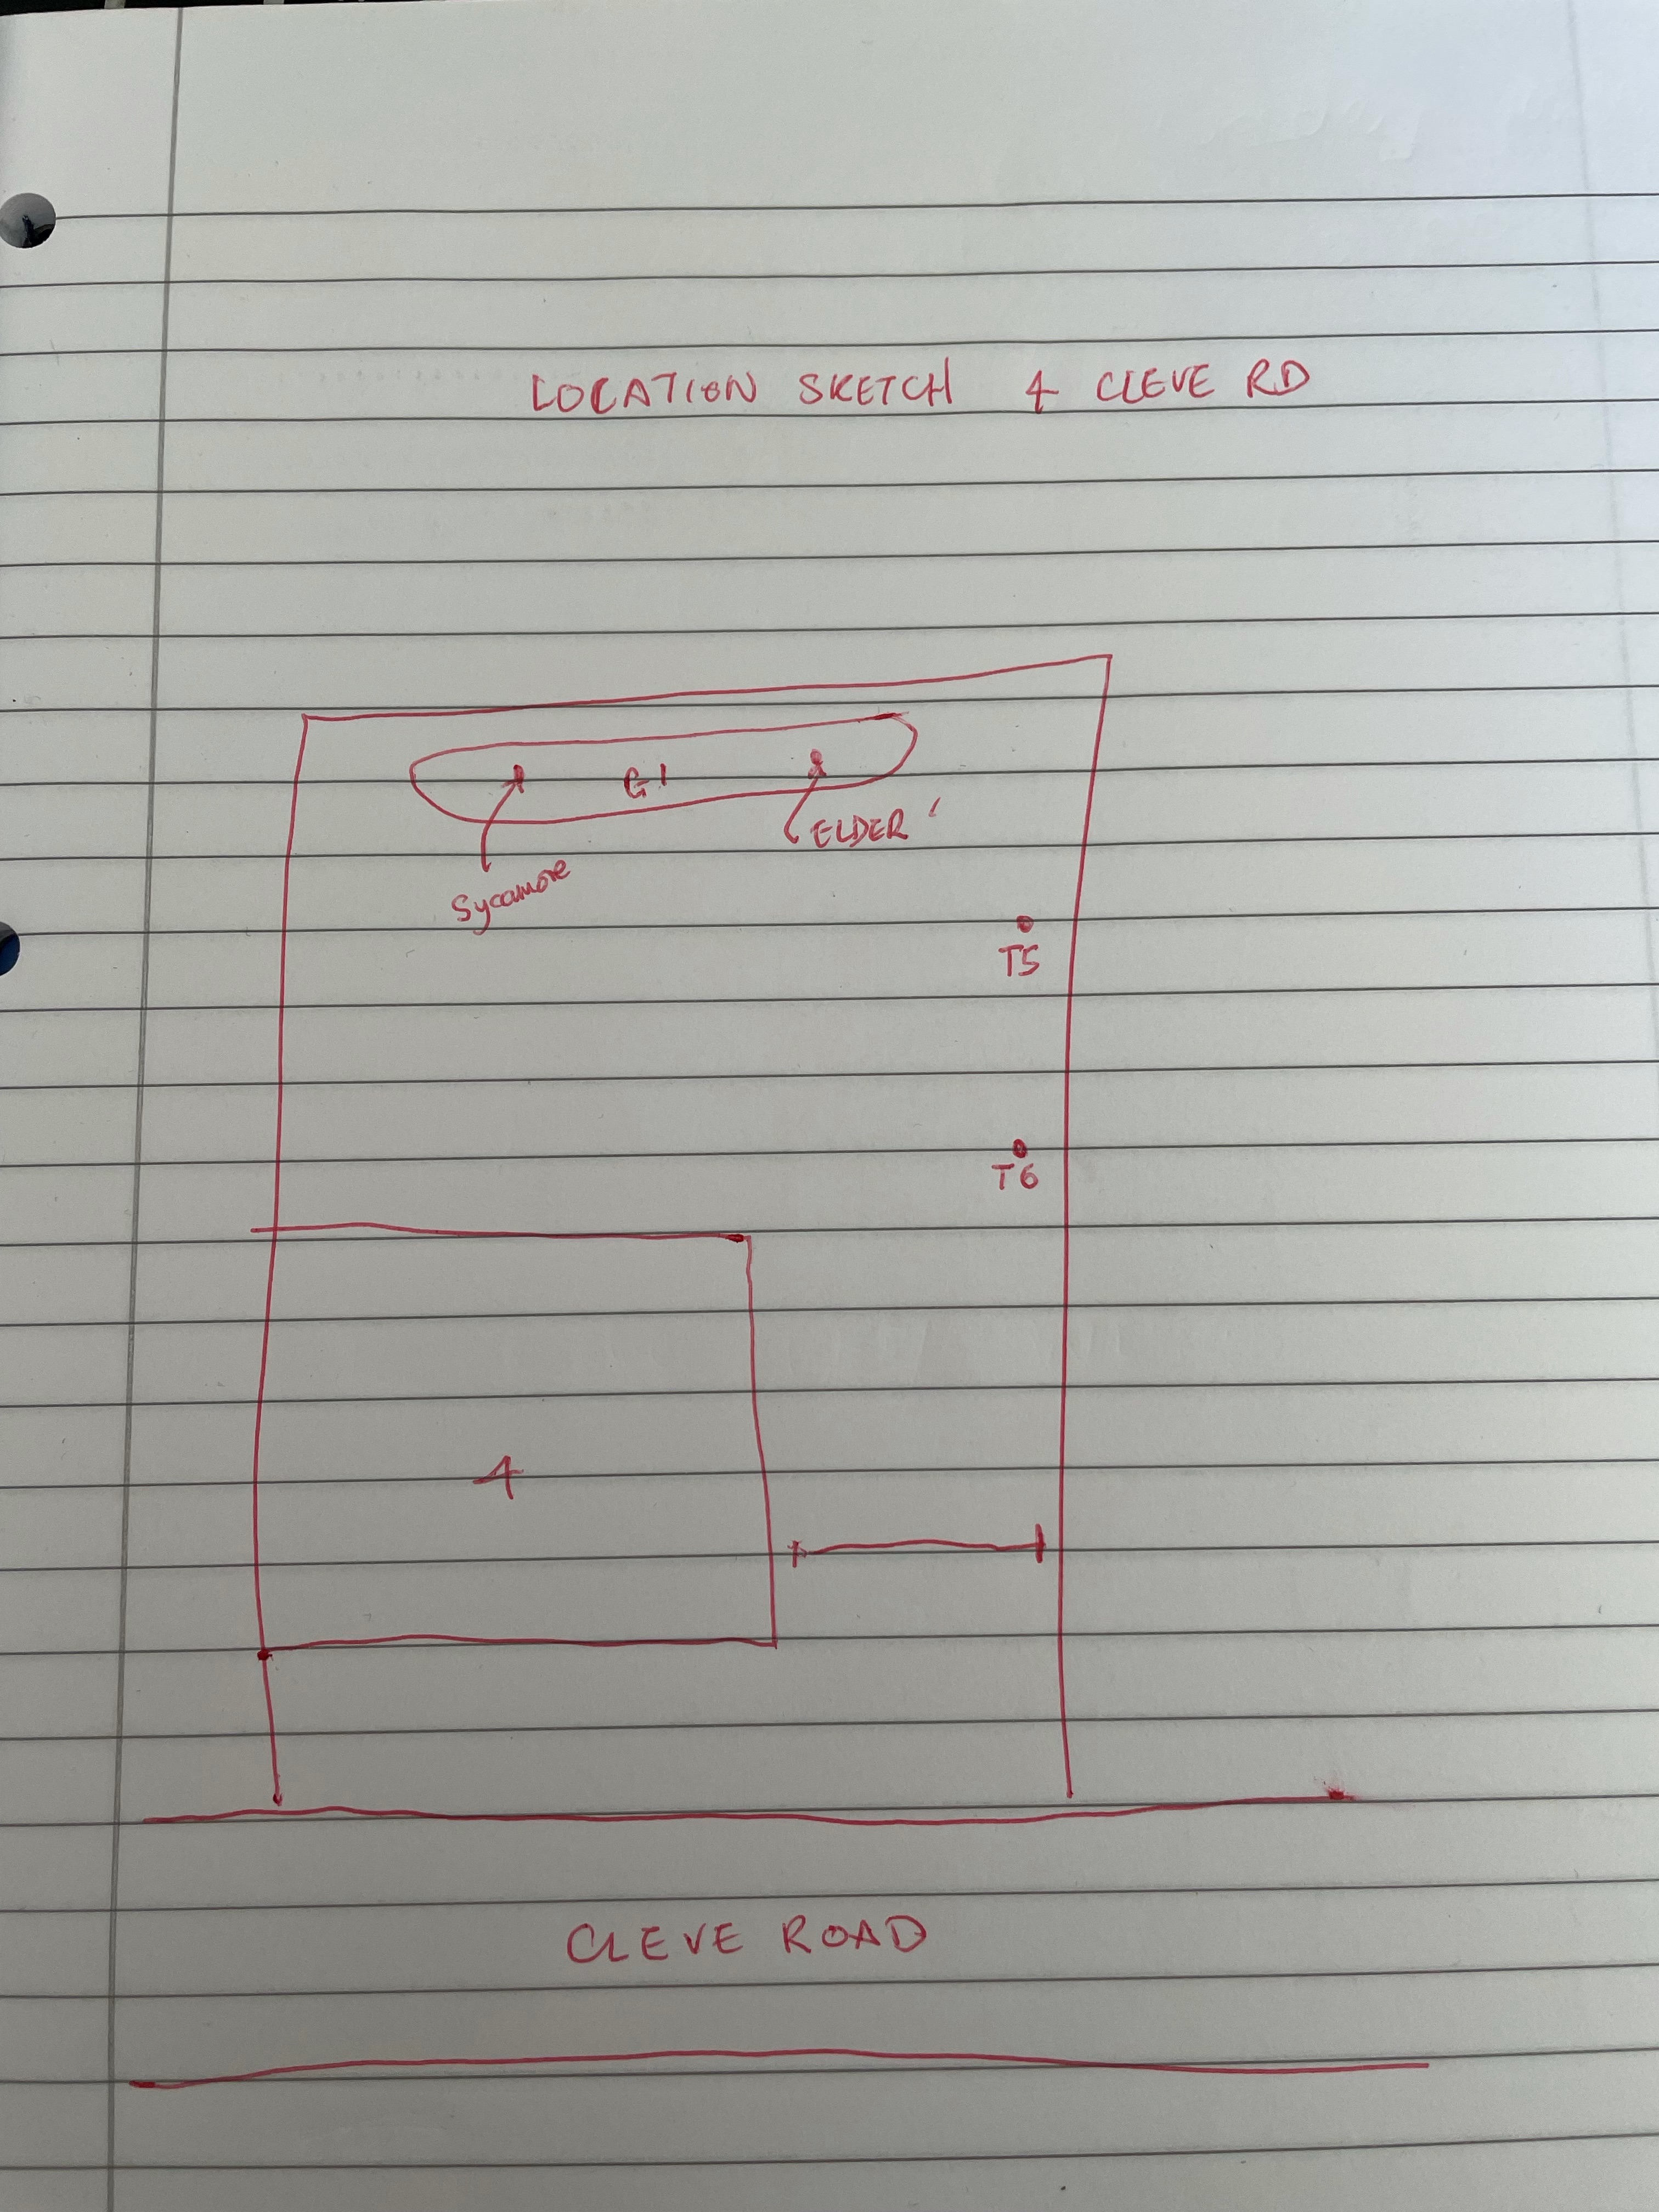 LOCATION SKETCH 4 CLEVE RD
G1
ELDER
Sycamore
T5
T6
4
CLEVE ROAD